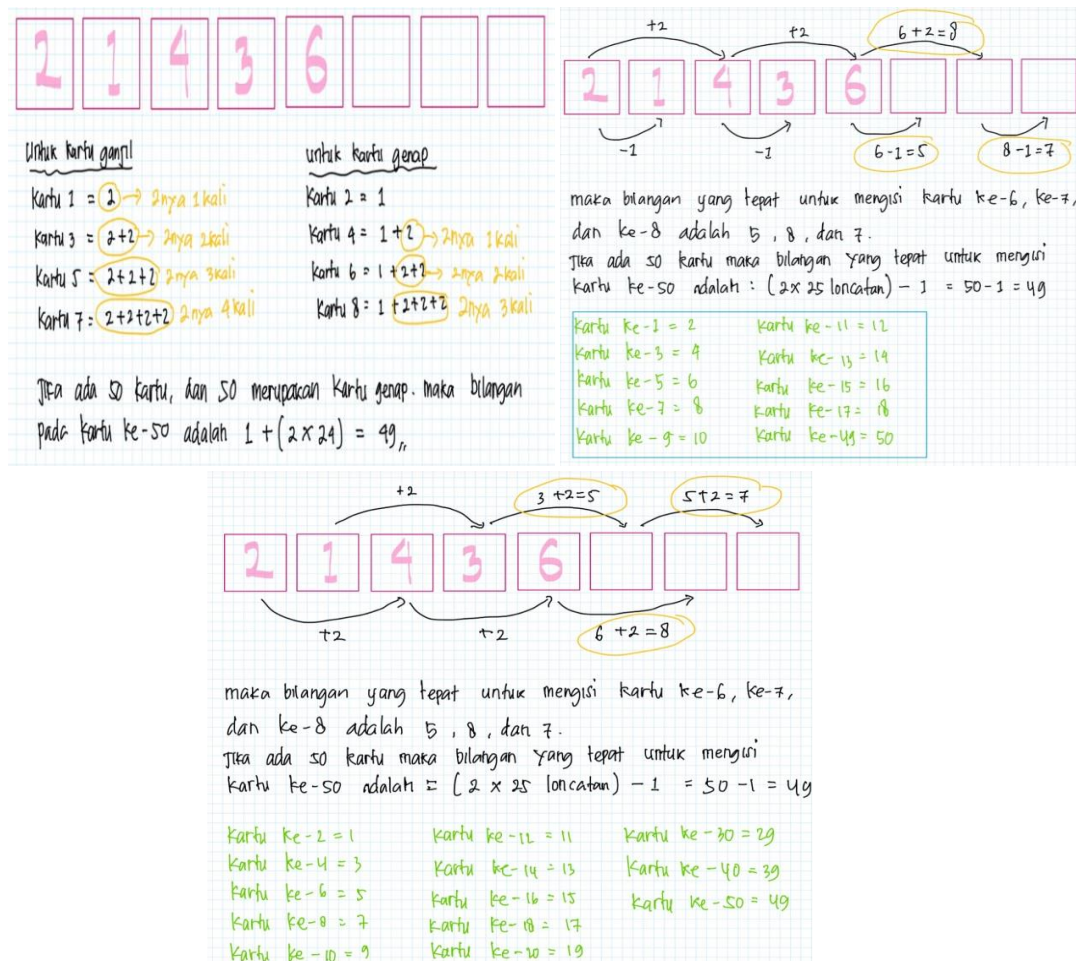 2 1 4 3 6
Untuk kartu ganjil
Kartu 1 = 2 → 2nya 1 kali
Kartu 3 = 2+2 → 2nya 2kali
Kartu 5 = 2+2+2 2nya 3kali
Kartu 7 = 2+2+2+2 2nya 4kali
untuk kartu genap
Kartu 2 = 1
Kartu 4 = 1+2 → 2nya 1kali
Kartu 6 = 1+2+2 → 2nya 2kali
Kartu 8 = 1+2+2+2 2nya 3kali
Jika ada 50 kartu, dan 50 merupakan kartu genap. maka bilangan
pada kartu ke-50 adalah 1 + (2 × 24) = 49,,
+2 +2 6+2=8
2 1 4 3 6
-1 -1 6-1=5 8-1=7
maka bilangan yang tepat untuk mengisi kartu ke-6, ke-7,
dan ke-8 adalah 5, 8, dan 7.
Jika ada 50 kartu maka bilangan yang tepat untuk mengisi
kartu ke-50 adalah : (2× 25 loncatan) - 1 = 50-1 = 49
Kartu ke-1 = 2
Kartu ke-3 = 4
Kartu ke-5 = 6
Kartu ke-7 = 8
Kartu ke-9 = 10
Kartu ke-11 = 12
Kartu ke-13 = 14
Kartu ke-15 = 16
Kartu ke-17 = 18
Kartu ke-49 = 50
+2 3+2=5 5+2=7
2 1 4 3 6
+2 +2 6+2=8
maka bilangan yang tepat untuk mengisi kartu ke-6, ke-7,
dan ke-8 adalah 5, 8, dan 7.
Jika ada 50 kartu maka bilangan yang tepat untuk mengisi
kartu ke-50 adalah = (2 × 25 loncatan) - 1 = 50-1 = 49
Kartu ke-2 = 1
Kartu ke-4 = 3
Kartu ke-6 = 5
Kartu ke-8 = 7
Kartu ke-10 = 9
Kartu ke-12 = 11
Kartu ke-14 = 13
Kartu ke-16 = 15
Kartu ke-18 = 17
Kartu ke-20 = 19
Kartu ke-30 = 29
Kartu ke-40 = 39
Kartu ke-50 = 49